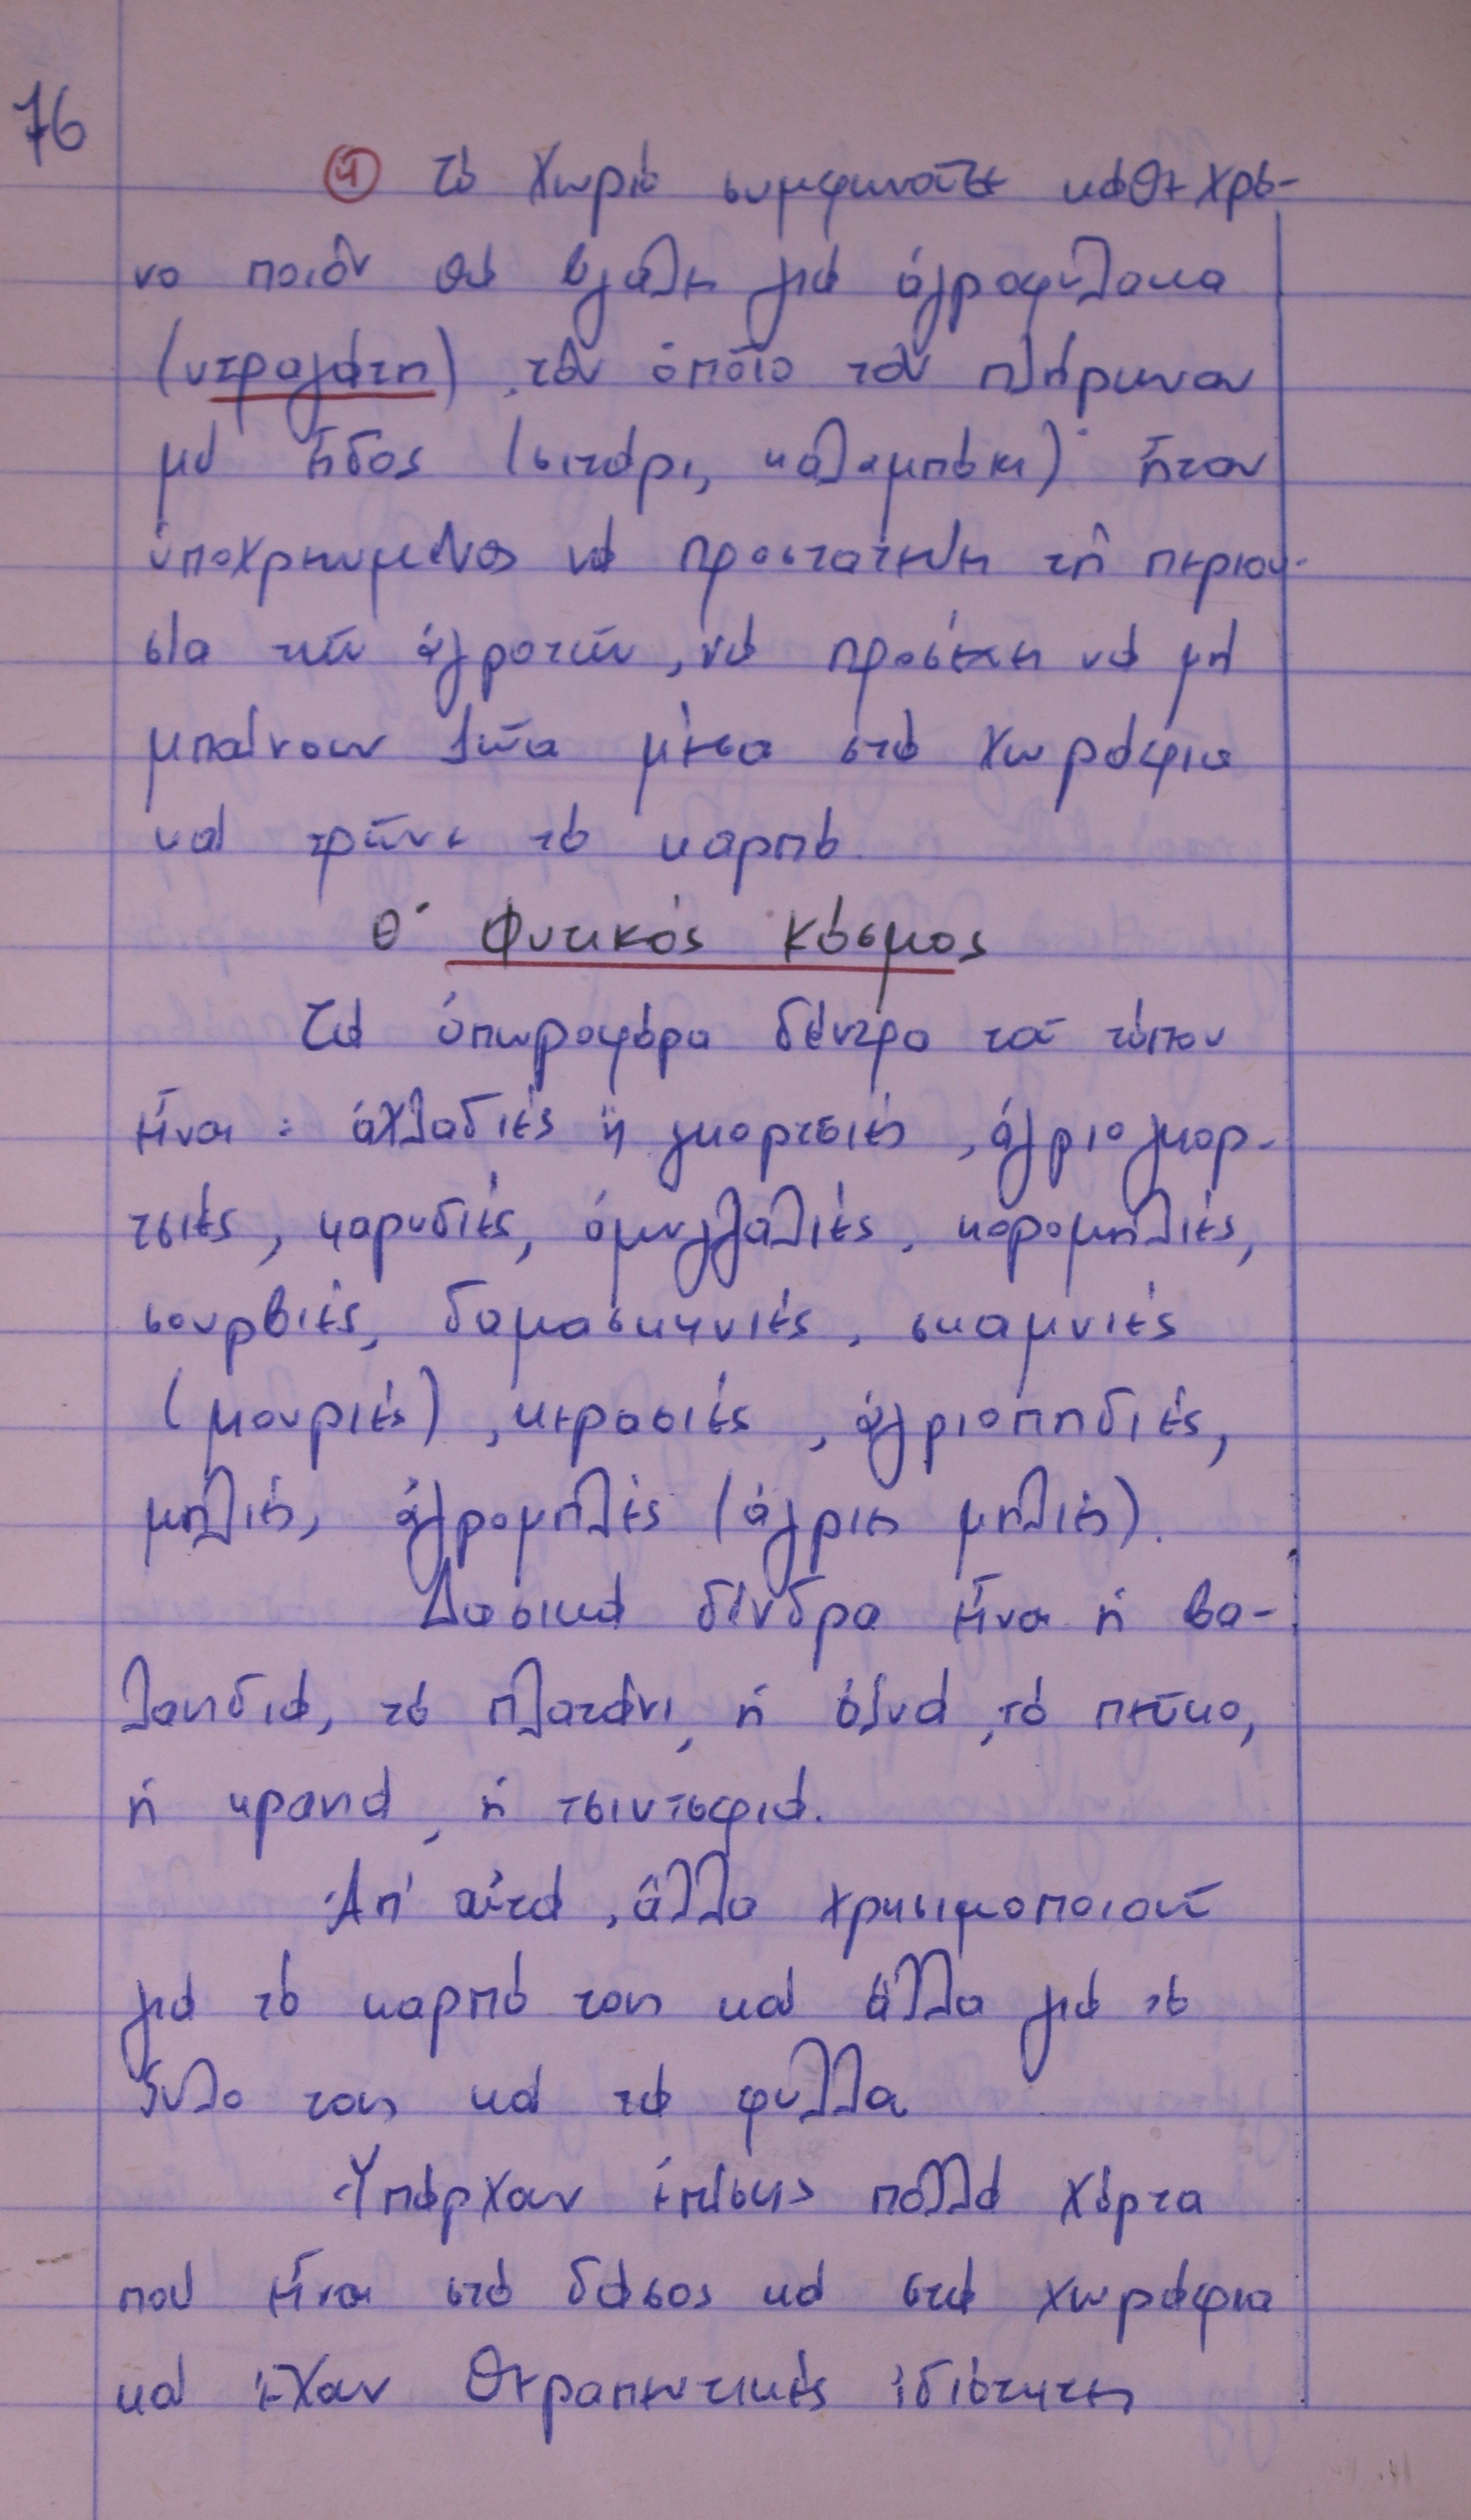 76
④ τό χωριό συμφωνοῦσε κάθε χρό-
νο ποιόν θά βγάλει γιά ἀγροφύλακα
(ντραγάτη), τόν ὁποῖο τόν πλήρωναν
μέ εἶδος (σιτάρι, καλαμπόκι)· ἦταν
ὑποχρεωμένος νά προστατεύει τή περιου-
σία τῶν ἀγροτῶν, νά προσέχει νά μή
μπαίνουν ζῶα μέσα στά χωράφια
καί τρῶνε τό καρπό.
θ΄ Φυτικός κόσμος
Τά ὀπωροφόρα δέντρα τοῦ τόπου
εἶναι : ἀχλαδιές ἤ γκορτσιές, ἀγριογκορ-
τσιές, καρυδιές, ἀμυγδαλιές, κορομηλιές,
σουρβιές, δαμασκηνιές, σκαμνιές
(μουριές), κερασιές, ἀγριοπηδιές,
μηλιές, ἀγρομηλιές (ἄγριες μηλιές).
Δασικά δένδρα εἶναι ἡ βα-
λανιδιά, τό πλατάνι, ἡ ὀξυά, τό πεῦκο,
ἡ κρανιά, ἡ τσιντσεφιά.
Ἀπ' αὐτά, ἄλλα χρησιμοποιοῦν
γιά τό καρπό τους καί ἄλλα γιά τό
ξύλο τους καί τά φύλλα.
Ὑπάρχουν ἐπίσης πολλά χόρτα
πού εἶναι στό δάσος καί στά χωράφια
καί ἔχουν θεραπευτικές ἰδιότητες